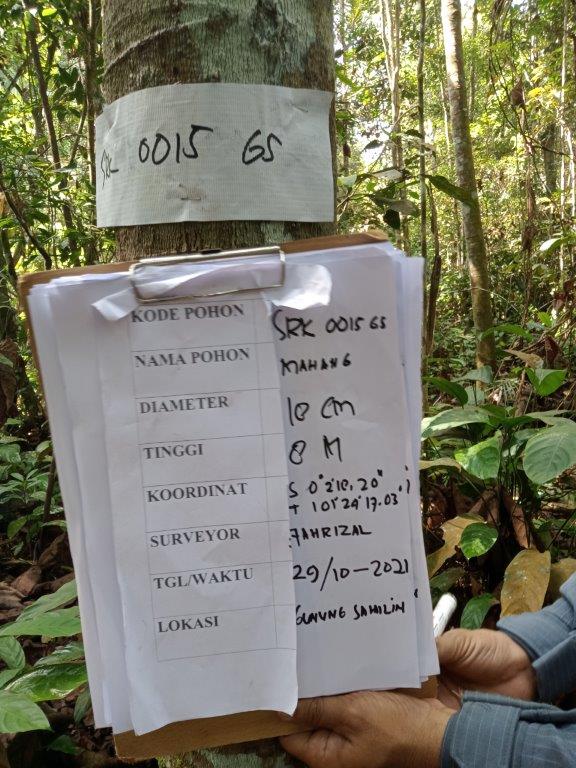 SRK 0015 GS
KODE POHON SRK 0015 GS
NAMA POHON MAHANG
DIAMETER 18 cm
TINGGI 8 M
KOORDINAT S 0°
T 101°29'17.03"
SURVEYOR FAHRIZAL
TGL/WAKTU 29/10-2021
LOKASI GUNUNG SAHILIN